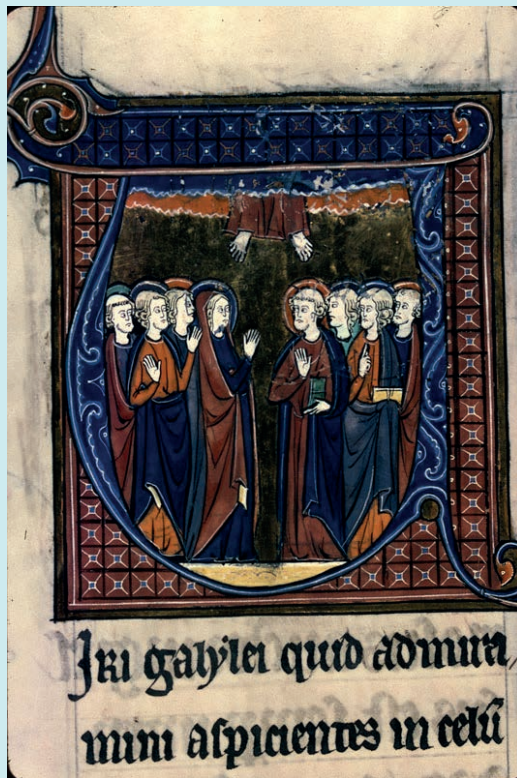 VIri galylei quid admira
mini aspicientes in celū